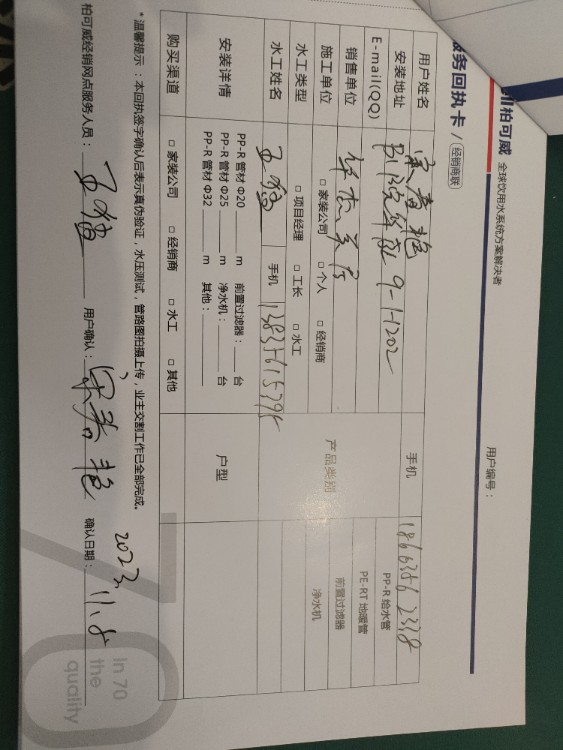 柏可威 全球饮用水系统方案解决者
服务回执卡 / 经销商联
用户编号：
用户姓名 手机
安装地址 9-1-1202 PP-R 给水管
E-mail(QQ) PE-RT 地暖管
销售单位 产品类别 前置过滤器
施工单位 □ 家装公司 □ 个人 □ 经销商 净水机
水工类型 □ 项目经理 □ 工长 □ 水工
水工姓名 手机
安装详情 PP-R 管材 Φ20 ____ m 前置过滤器：____ 台 户型
PP-R 管材 Φ25 ____ m 净水机：____ 台
PP-R 管材 Φ32 ____ m 其他：____
购买渠道 □ 家装公司 □ 经销商 □ 水工 □ 其他
* 温馨提示：本回执签字确认后表示真伪验证，水压测试，管路图拍摄上传，业主交割工作已全部完成。
柏可威经销网点服务人员： 用户确认： 确认日期：2023.11.8
In 70
the
quality